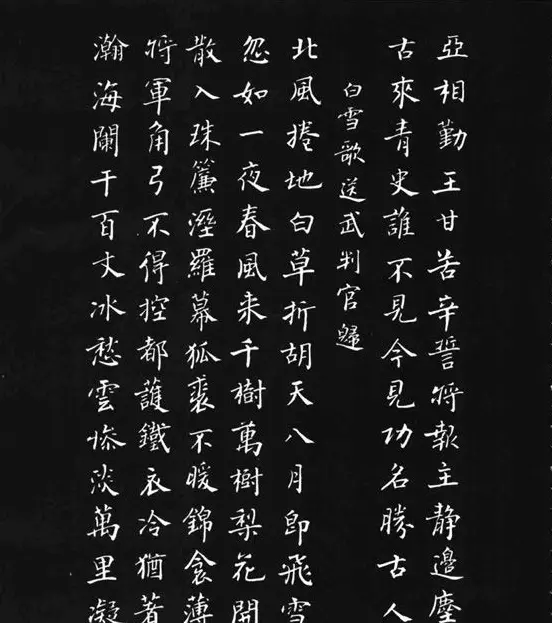 亞相勤王甘苦辛誓將報主靜邊塵
古來青史誰不見今見功名勝古人
白雪歌送武判官歸
北風捲地白草折胡天八月即飛雪
忽如一夜春風来千樹萬樹梨花開
散入珠簾溼羅幕狐裘不暖錦衾薄
將軍角弓不得控都護鐵衣冷猶著
瀚海闌干百丈冰愁雲慘淡萬里凝